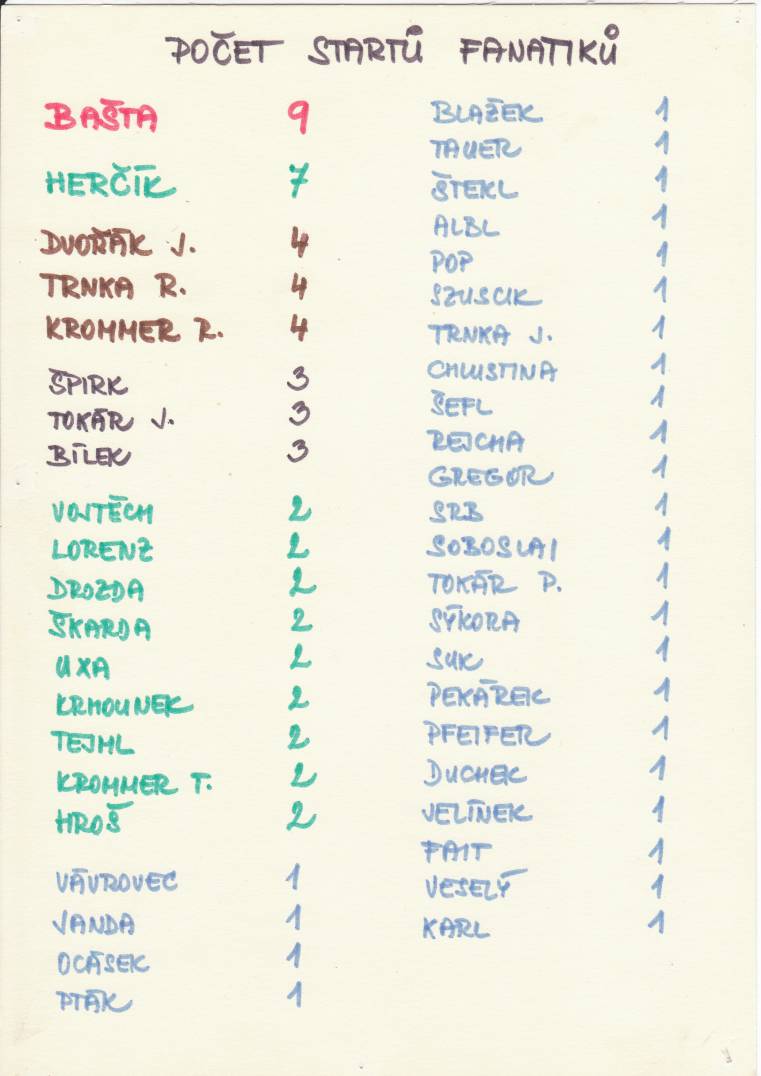 POČET STARTŮ FANATIKŮ
BAŠTA 9
HERČÍK 7
DVOŘÁK J. 4
TRNKA R. 4
KROMMER R. 4
ŠPIRK 3
TOKÁR J. 3
BÍLEK 3
VOJTĚCH 2
LORENZ 2
DROZDA 2
ŠKARDA 2
UXA 2
KRHOUNEK 2
TEJML 2
KROMMER T. 2
HROŠ 2
VÁVROVEC 1
JANDA 1
OCÁSEK 1
PTÁK 1
BLAŽEK 1
TAUER 1
ŠTEKL 1
ALBL 1
POP 1
SZUSCIK 1
TRNKA J. 1
CHLUSTINA 1
ŠEFL 1
REJCHA 1
GREGOR 1
SRB 1
SOBOSLAI 1
TOKÁR P. 1
SÝKORA 1
SUK 1
PEKÁREK 1
PFEIFER 1
DUCHEK 1
JELÍNEK 1
FAIT 1
VESELÝ 1
KARL 1